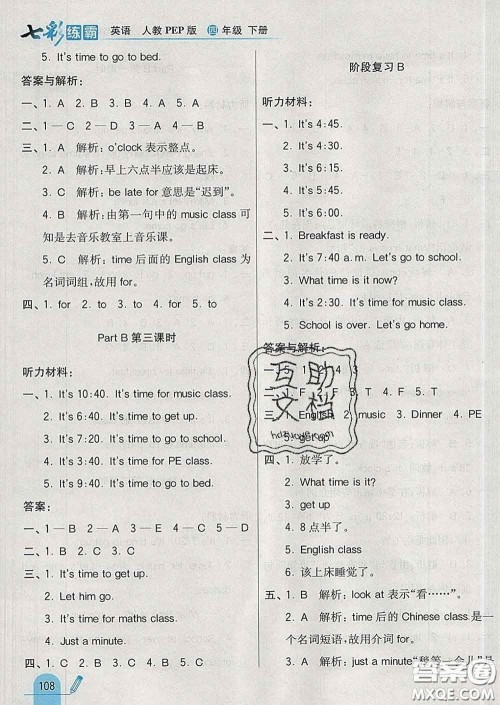 七彩练霸 英语 人教PEP版 四年级 下册
5. It's time to go to bed.
答案与解析:
一、1. A 2. B 3. B 4. A 5. A
二、1—C 2—D 3—A 4—B
三、1. A 解析: o'clock 表示整点。
2. A 解析: 早上六点半应该是起床。
3. C 解析: be late for 意思是“迟到”。
4. B 解析: 由第一句中的 music class 可
知是去音乐教室上音乐课。
5. C 解析: time 后面的 English class 为
名词词组,故用 for。
四、1. for 2. to 3. to 4. for 5. to
Part B 第三课时
听力材料:
一、1. It's 10:40. It's time for music class.
2. It's 6:40. It's time to get up.
3. It's 7:40. It's time to go to school.
4. It's 2:40. It's time for PE class.
5. It's 9:40. It's time to go to bed.
答案:
一、1—B 2—D 3—A 4—E 5—C
二、1. B 2. C 3. C
三、1. It's time to get up.
2. Let him go.
3. It's time for maths class.
4. Just a minute.
四、1. C 2. A 3. B 4. C
108
阶段复习 B
听力材料:
一、1. It's 4:45.
2. It's 5:00.
3. It's 5:30.
4. It's 5:45.
5. It's 6:00.
二、1. Breakfast is ready.
2. It's 7:40 a.m. Let's go to school.
3. What time is it now?
4. It's 2:30. It's time for music class.
5. School is over. Let's go home.
答案与解析:
一、5 1 4 3
二、1. F F 3. F 4. T 5. F
三、1. English 2. music 3. Dinner 4. PE
5. get up
四、1. 放学了。
2. What time is it?
3. get up
4. 8点半了。
5. English class
6. 该上床睡觉了。
五、1. B 解析: look at 表示“看……”
2. A 解析: time 后的 Chinese class 是一
个名词短语,故用介词 for。
3. A 解析: just a minute“稍等一会儿”是
互助
文档
答案圈
MXQE.COM